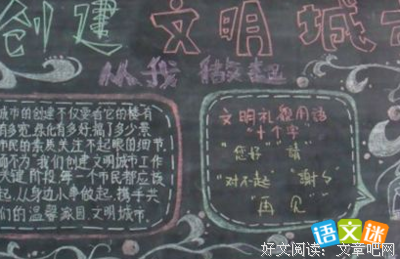 创建文明城市
从我做起
城市的创建不仅要看它的楼有
有多宽,绿化有多好,搞了多少景
市民的素质关注不起眼的细节,
而不为,我们创建文明城市工作
关键阶段,每一个市民都应该
起,从身边小事做起,携手共
们的温馨家园,文明城市。
文明礼貌用语
"十个字"
"您好" "请"
"对不起" "谢谢"
"再见"
语文迷
好文阅读:文章吧网